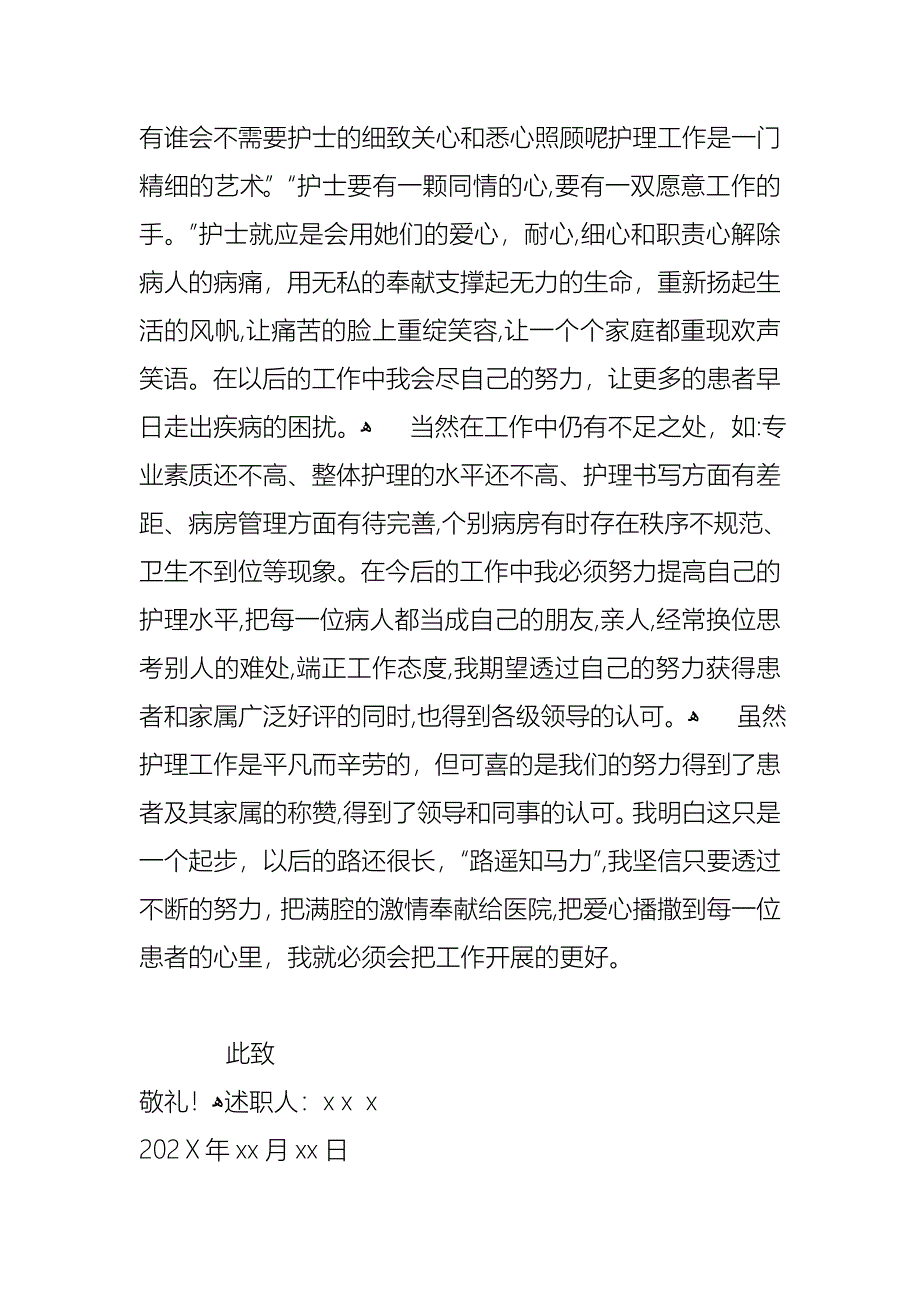 有谁会不需要护士的细致关心和悉心照顾呢护理工作是一门
精细的艺术”。“护士要有一颗同情的心,要有一双愿意工作的
手。”护士就应是会用她们的爱心，耐心,细心和职责心解除
病人的病痛，用无私的奉献支撑起无力的生命，重新扬起生
活的风帆,让痛苦的脸上重绽笑容,让一个个家庭都重现欢声
笑语。在以后的工作中我会尽自己的努力，让更多的患者早
日走出疾病的困扰。ﻫ 当然在工作中仍有不足之处，如:专
业素质还不高、整体护理的水平还不高、护理书写方面有差
距、病房管理方面有待完善,个别病房有时存在秩序不规范、
卫生不到位等现象。在今后的工作中我必须努力提高自己的
护理水平,把每一位病人都当成自己的朋友,亲人,经常换位思
考别人的难处,端正工作态度,我期望透过自己的努力获得患
者和家属广泛好评的同时,也得到各级领导的认可。ﻫ 虽然
护理工作是平凡而辛劳的，但可喜的是我们的努力得到了患
者及其家属的称赞,得到了领导和同事的认可。我明白这只是
一个起步，以后的路还很长，“路遥知马力”,我坚信只要透过
不断的努力，把满腔的激情奉献给医院,把爱心播撒到每一位
患者的心里，我就必须会把工作开展的更好。
此致
敬礼！ﻫ述职人：x x x
202X年 xx 月 xx 日